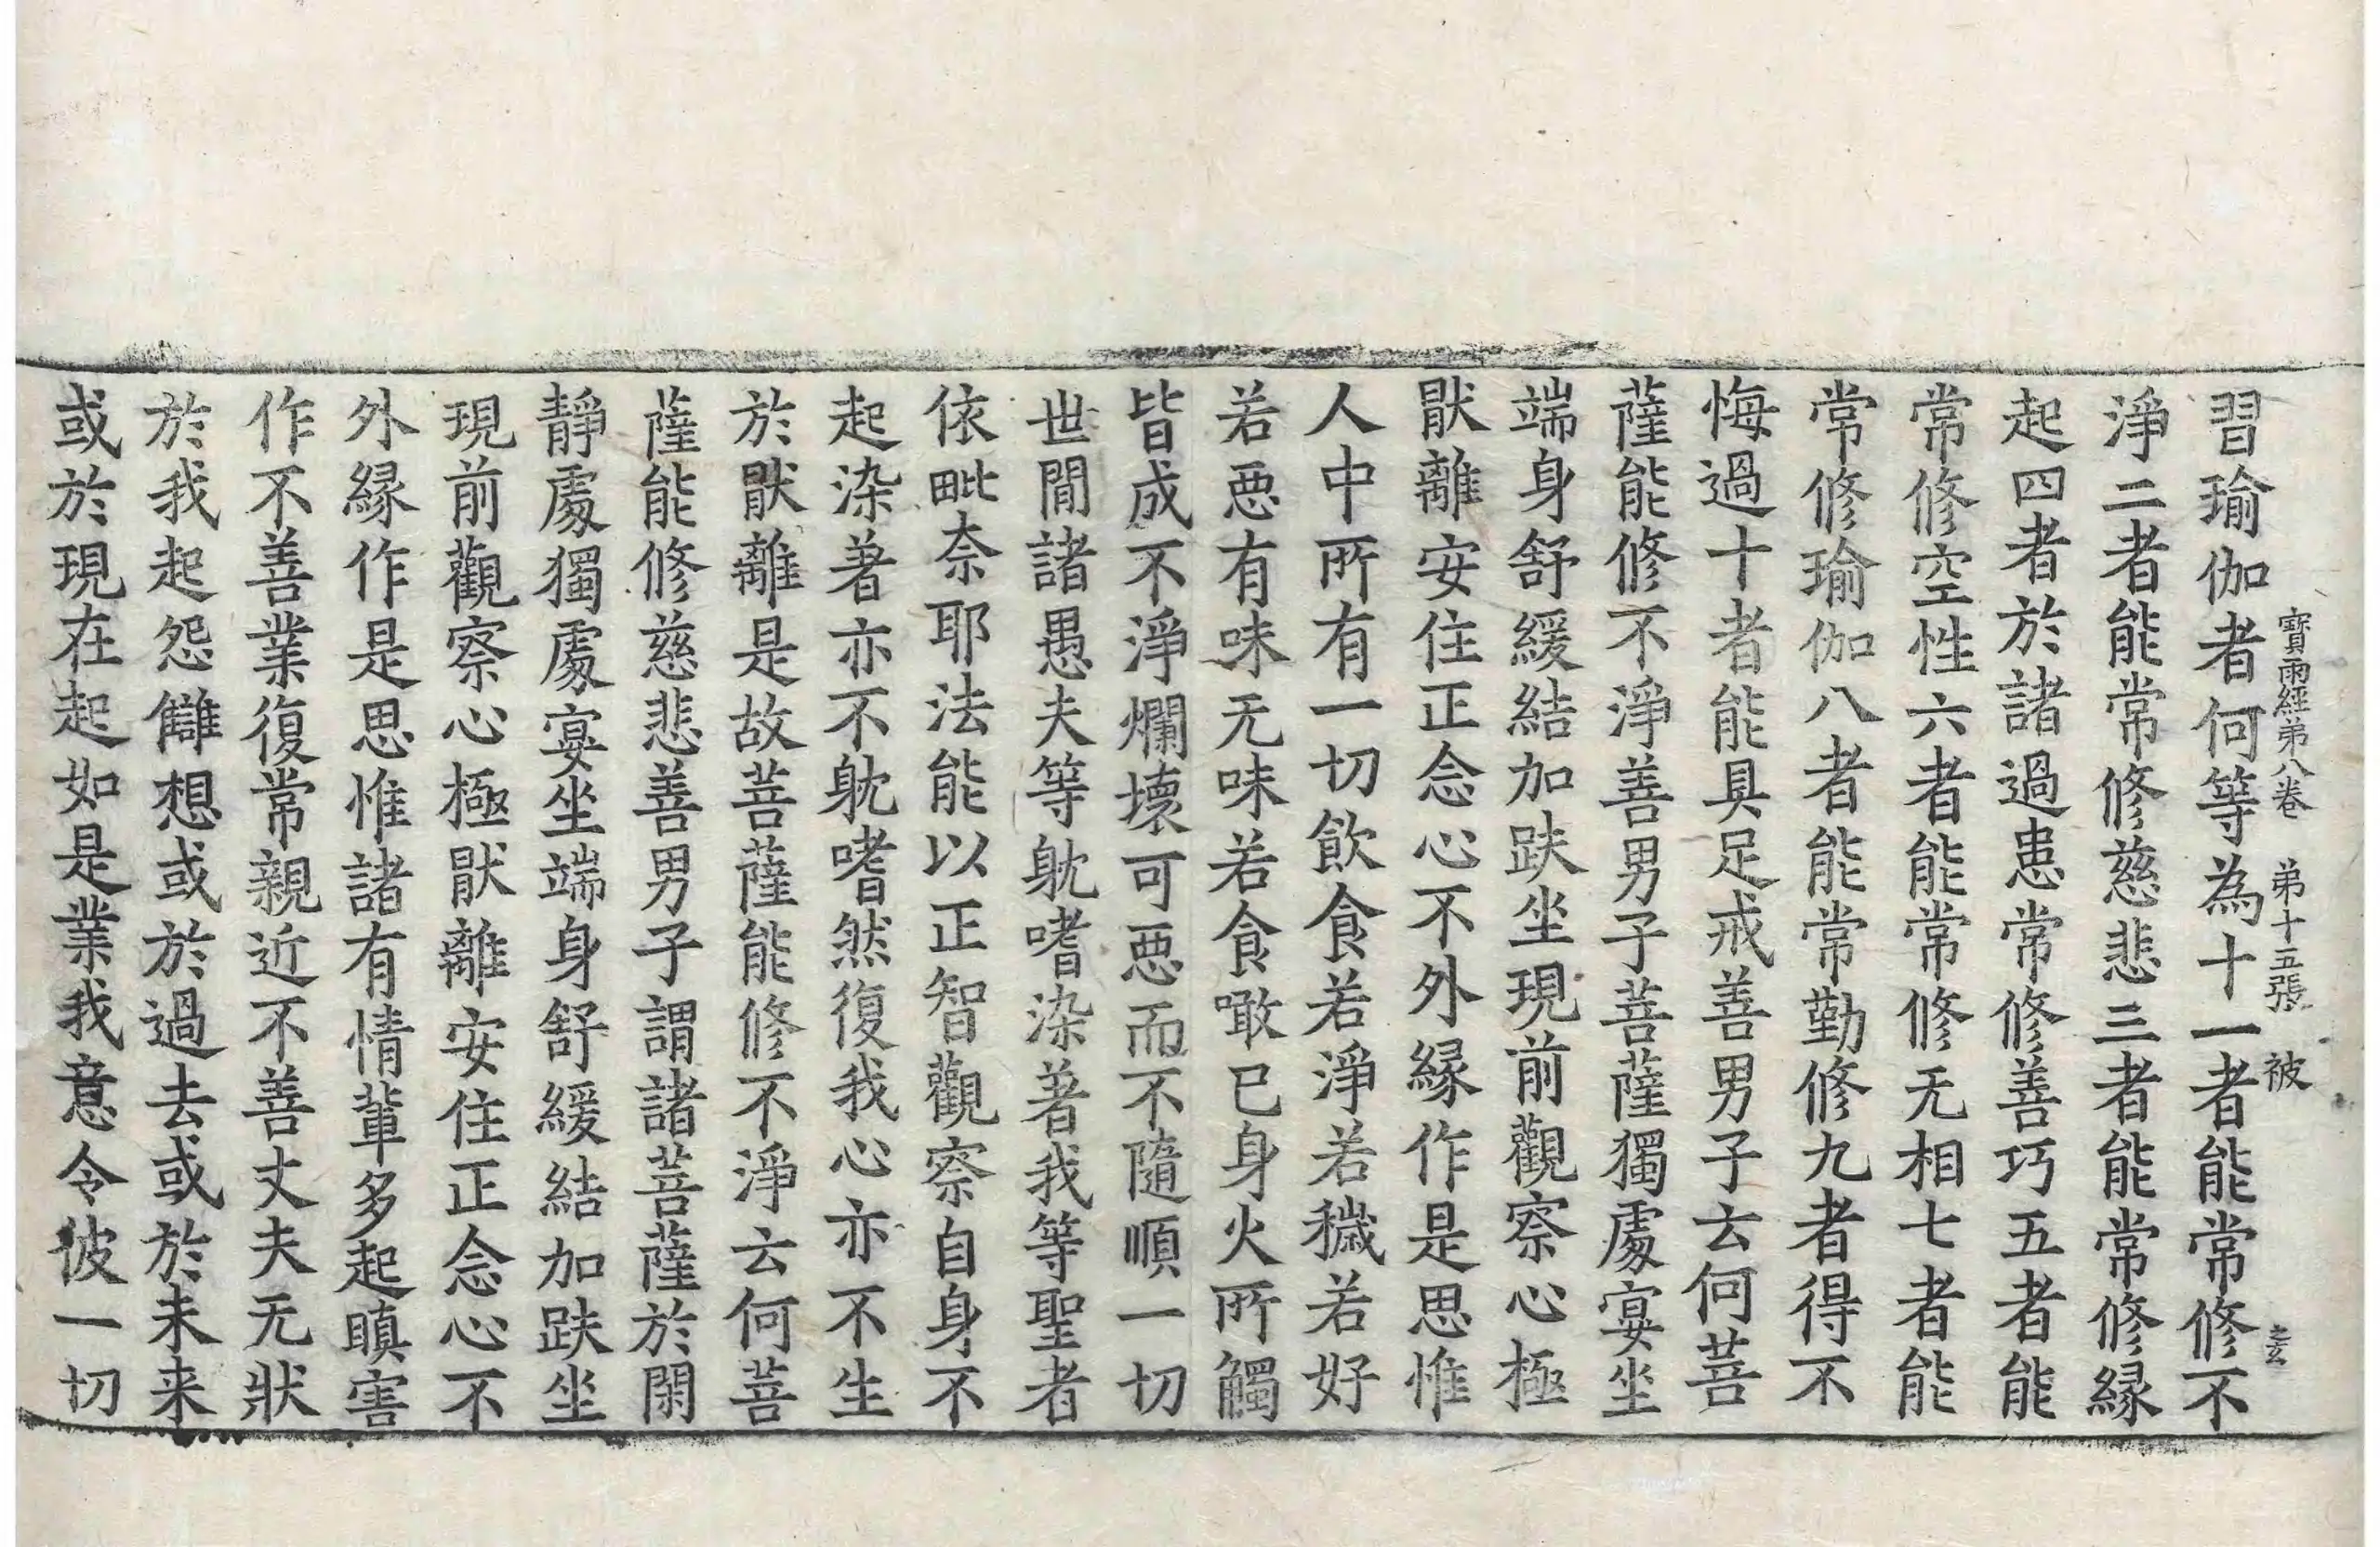 寳雨經弟八卷 弟十五張 被
習瑜伽者何等為十一者能常修不
淨二者能常修慈悲三者能常修縁
起四者於諸過患常修善巧五者能
常修空性六者能常修无相七者能
常修瑜伽八者能常勤修九者得不
悔過十者能具足戒善男子云何菩
薩能修不淨善男子菩薩獨處宴坐
端身舒緩結加趺坐現前觀察心極
猒離安住正念心不外縁作是思惟
人中所有一切飲食若淨若穢若好
若惡有味无味若食噉已身火所觸
皆成不淨爛壞可惡而不隨順一切
世閒諸愚夫等躭嗜染著我等聖者
依毗奈耶法能以正智觀察自身不
起染著亦不躭嗜然復我心亦不生
於猒離是故菩薩能修不淨云何菩
薩能修慈悲善男子謂諸菩薩於閑
靜處獨處宴坐端身舒緩結加趺坐
現前觀察心極猒離安住正念心不
外縁作是思惟諸有情軰多起瞋害
作不善業復常親近不善丈夫无狀
於我起怨讎想或於過去或於未来
或於現在起如是業我意令彼一切